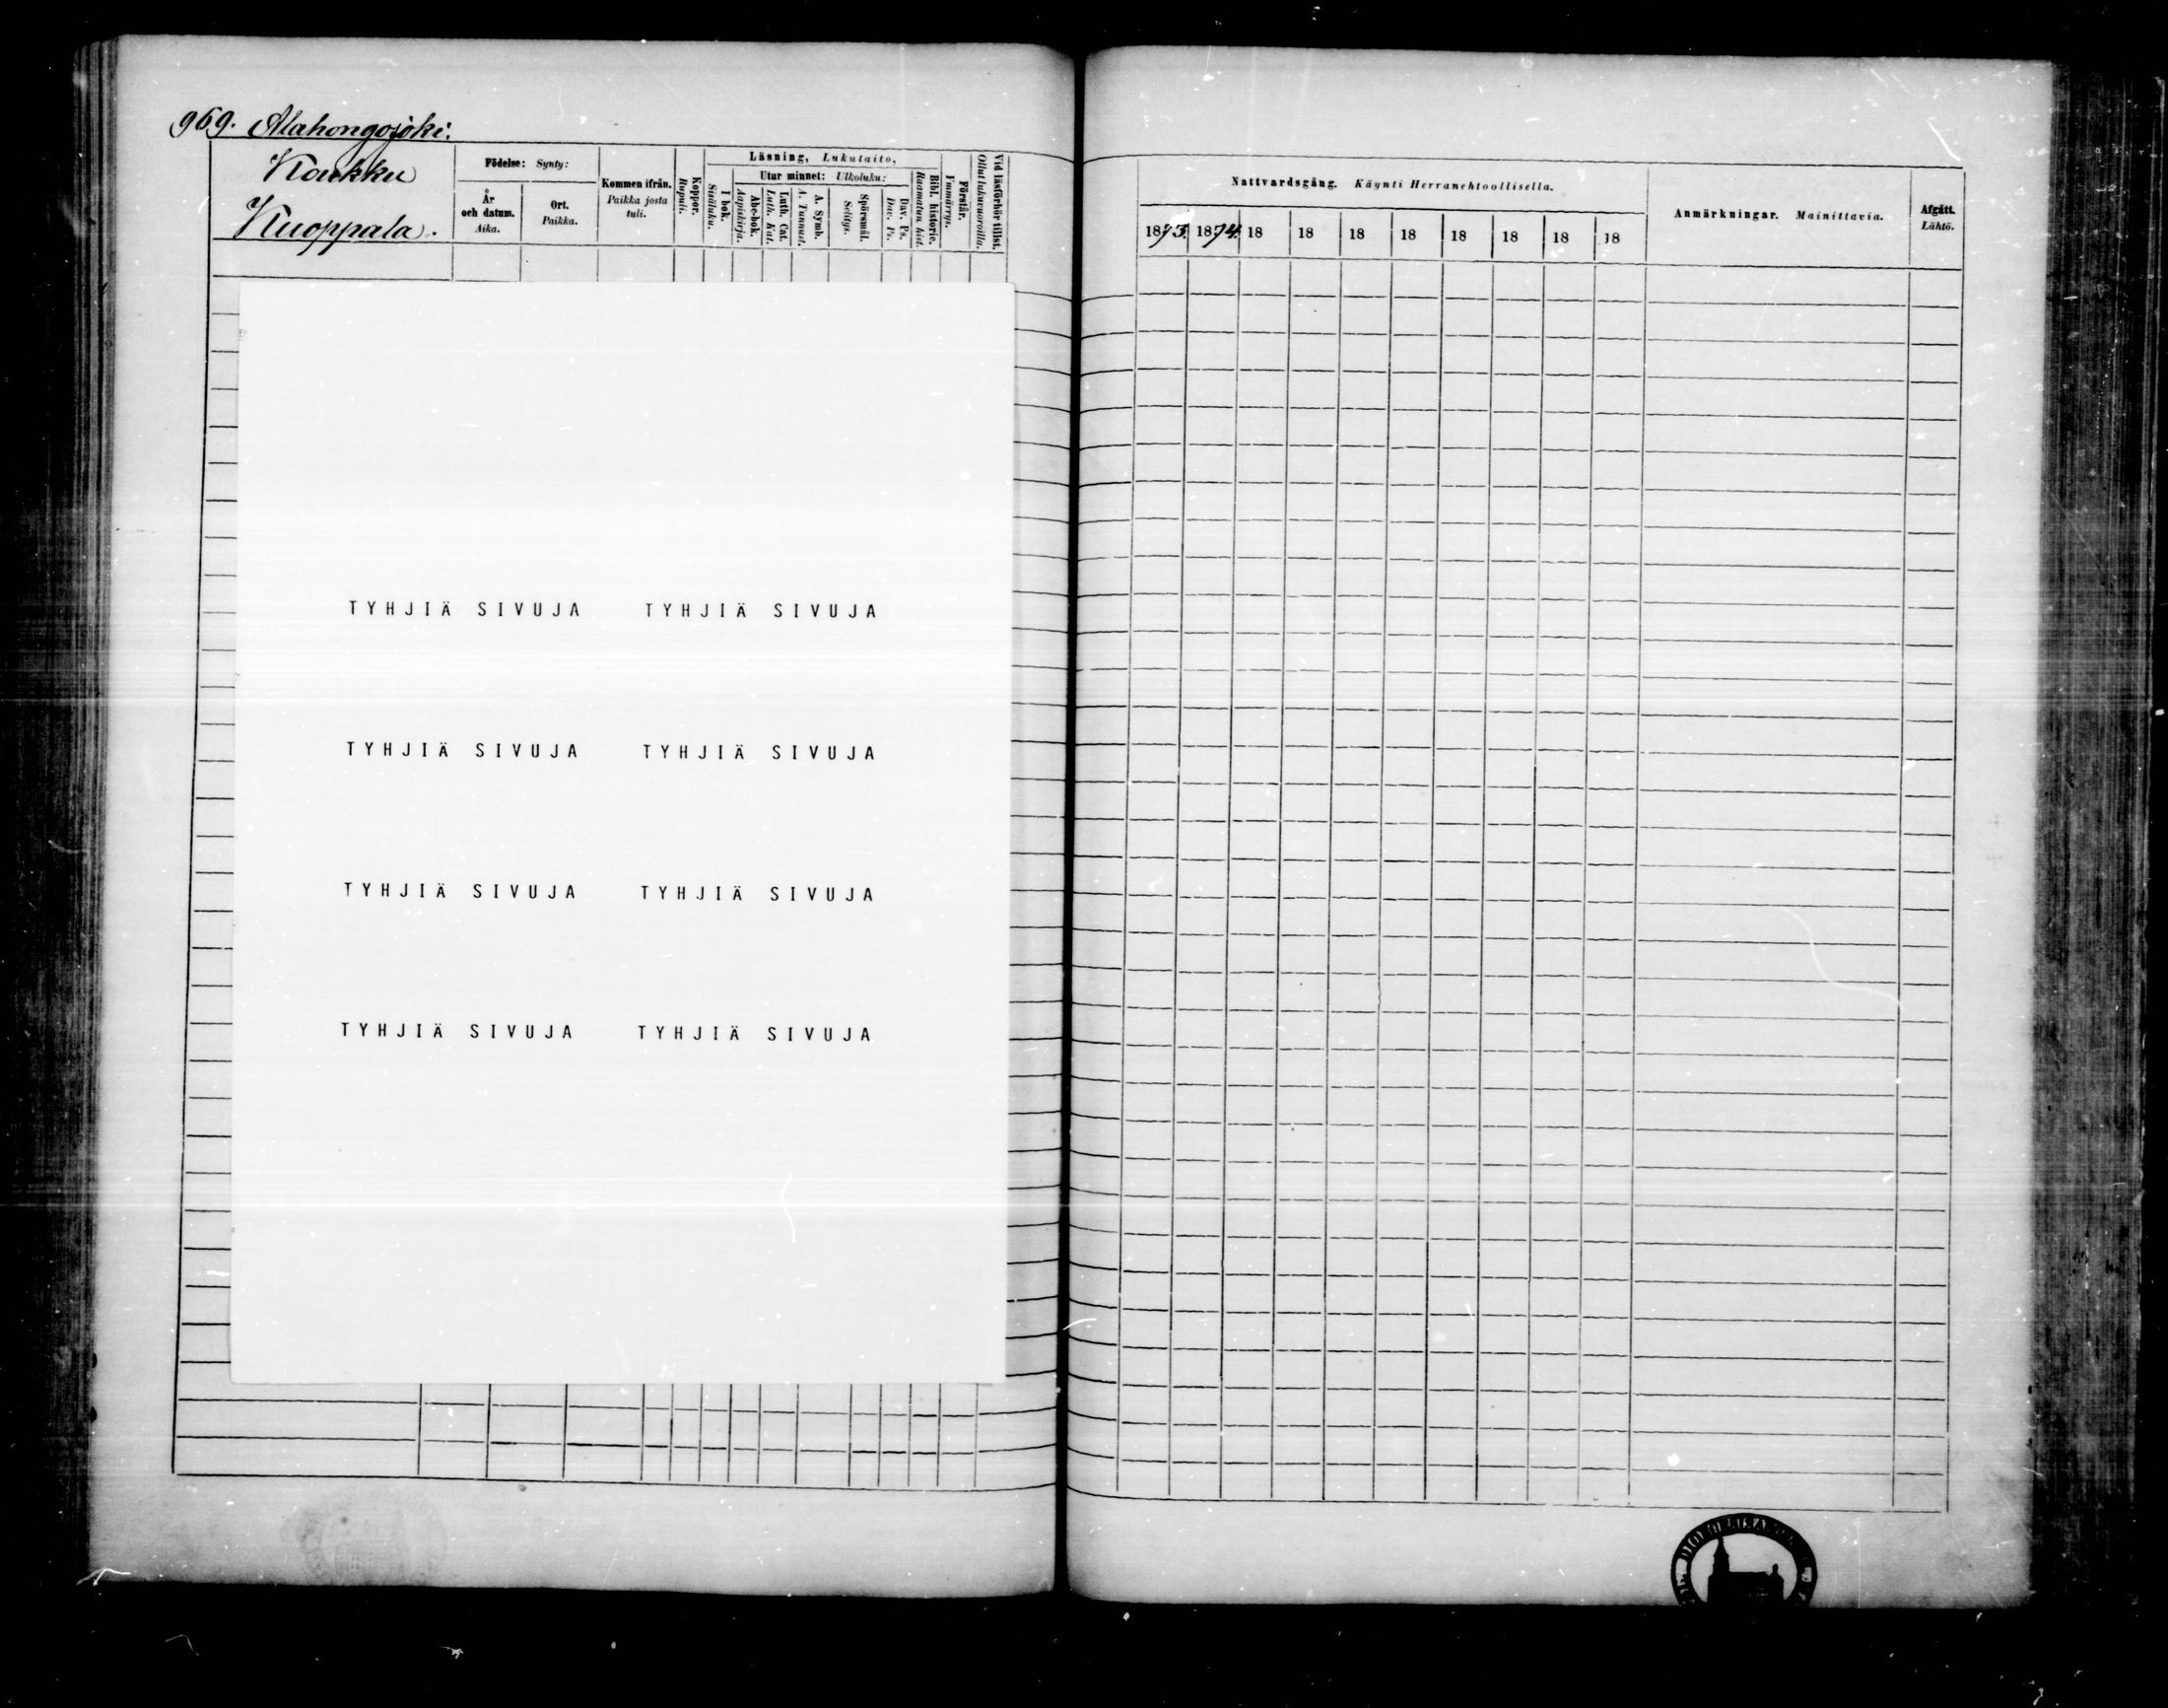 969. Alahongojoki.
Koukku
Kuoppala.
Födelse: Synty:
År
och datum.
Aika.
Ort.
Paikka.
Kommen ifrån.
Paikka josta
tuli.
Koppor.
Rupuli.
Läsning, Lukutaito,
I bok.
Sisäluku.
Utur minnet: Ulkoluku:
Abc-bok.
Aapiskirja.
Luth. Cat.
Luth. Kat.
A. Symb.
A. Tunnust.
Spörsmål.
Selitys.
Dav. Ps.
Dav. Ps.
Bibl. historie.
Raamatun hist.
Förstår.
Ymmärrys.
Vid läsförhör tillst.
Ollut lukuvuoroilla.
TYHJIÄ SIVUJA TYHJIÄ SIVUJA
TYHJIÄ SIVUJA TYHJIÄ SIVUJA
TYHJIÄ SIVUJA TYHJIÄ SIVUJA
TYHJIÄ SIVUJA TYHJIÄ SIVUJA
Nattvardsgång. Käynti Herranehtoollisella.
1873. 1874. 18 18 18 18 18 18 18 18
Anmärkningar. Mainittavia.
Afgått.
Lähtö.